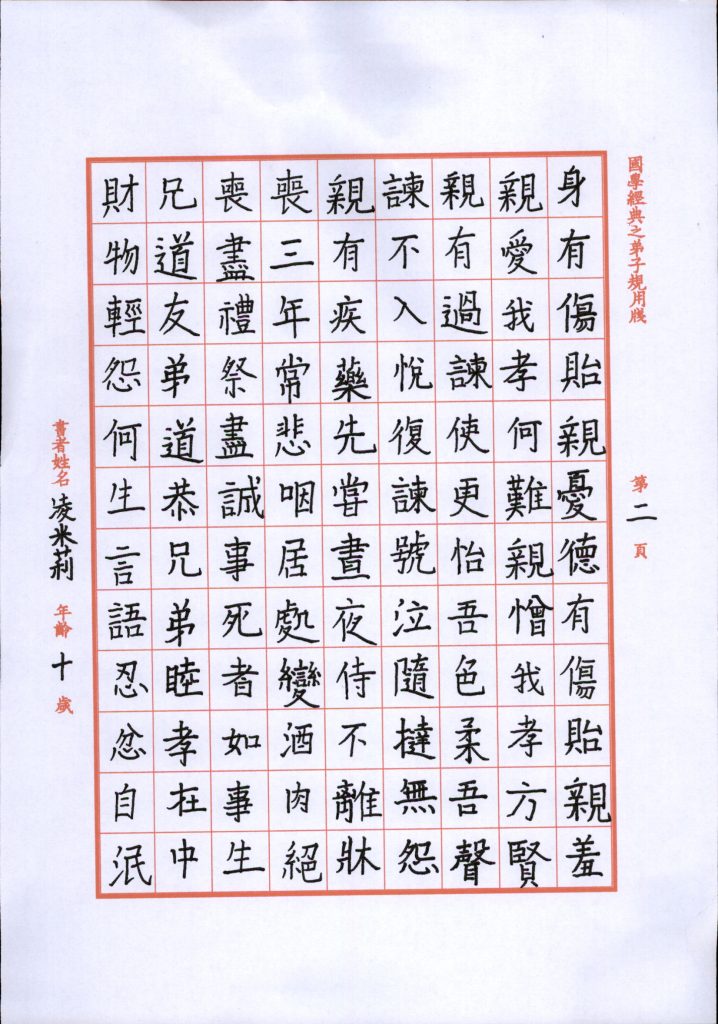 國學經典之弟子規用牋
第二頁
身有傷貽親憂德有傷貽親羞
親愛我孝何難親憎我孝方賢
親有過諫使更怡吾色柔吾聲
諫不入悅復諫號泣隨撻無怨
親有疾藥先嘗晝夜侍不離牀
喪三年常悲咽居處變酒肉絕
喪盡禮祭盡誠事死者如事生
兄道友弟道恭兄弟睦孝在中
財物輕怨何生言語忍忿自泯
書者姓名凌米莉年齡十歲